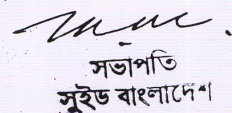 সভাপতি
সুইড বাংলাদেশ